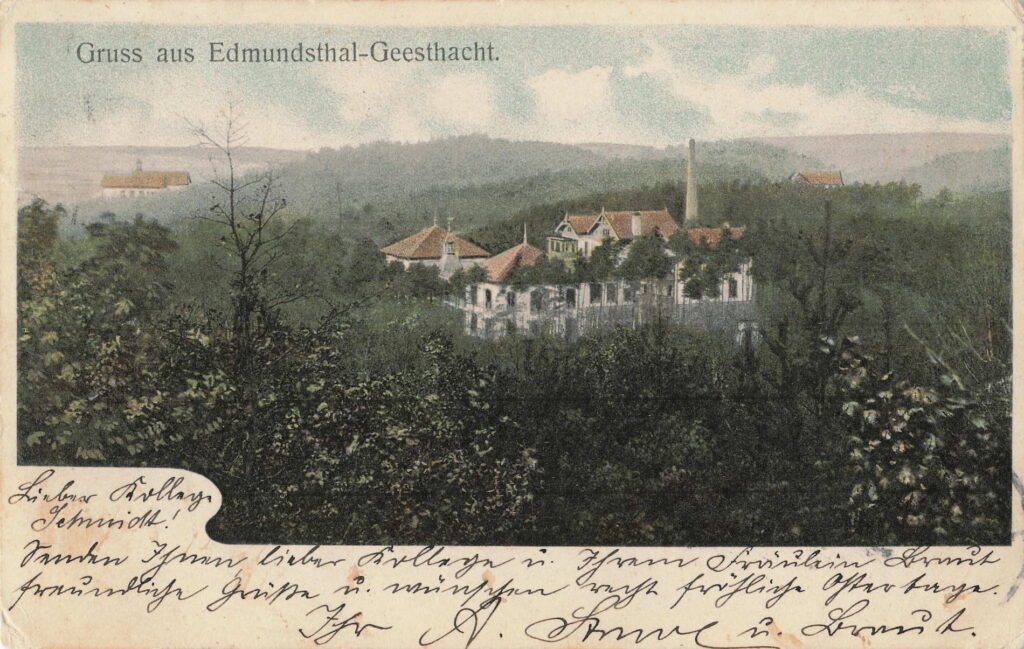 Gruss aus Edmundsthal-Geesthacht.
Lieber Kollege
Schmidt!
Senden Ihnen, lieber Kollege u. Ihrem Fräulein Braut
freundliche Grüße u. wünschen recht fröhliche Ostertage.
Ihr A. u. Braut.